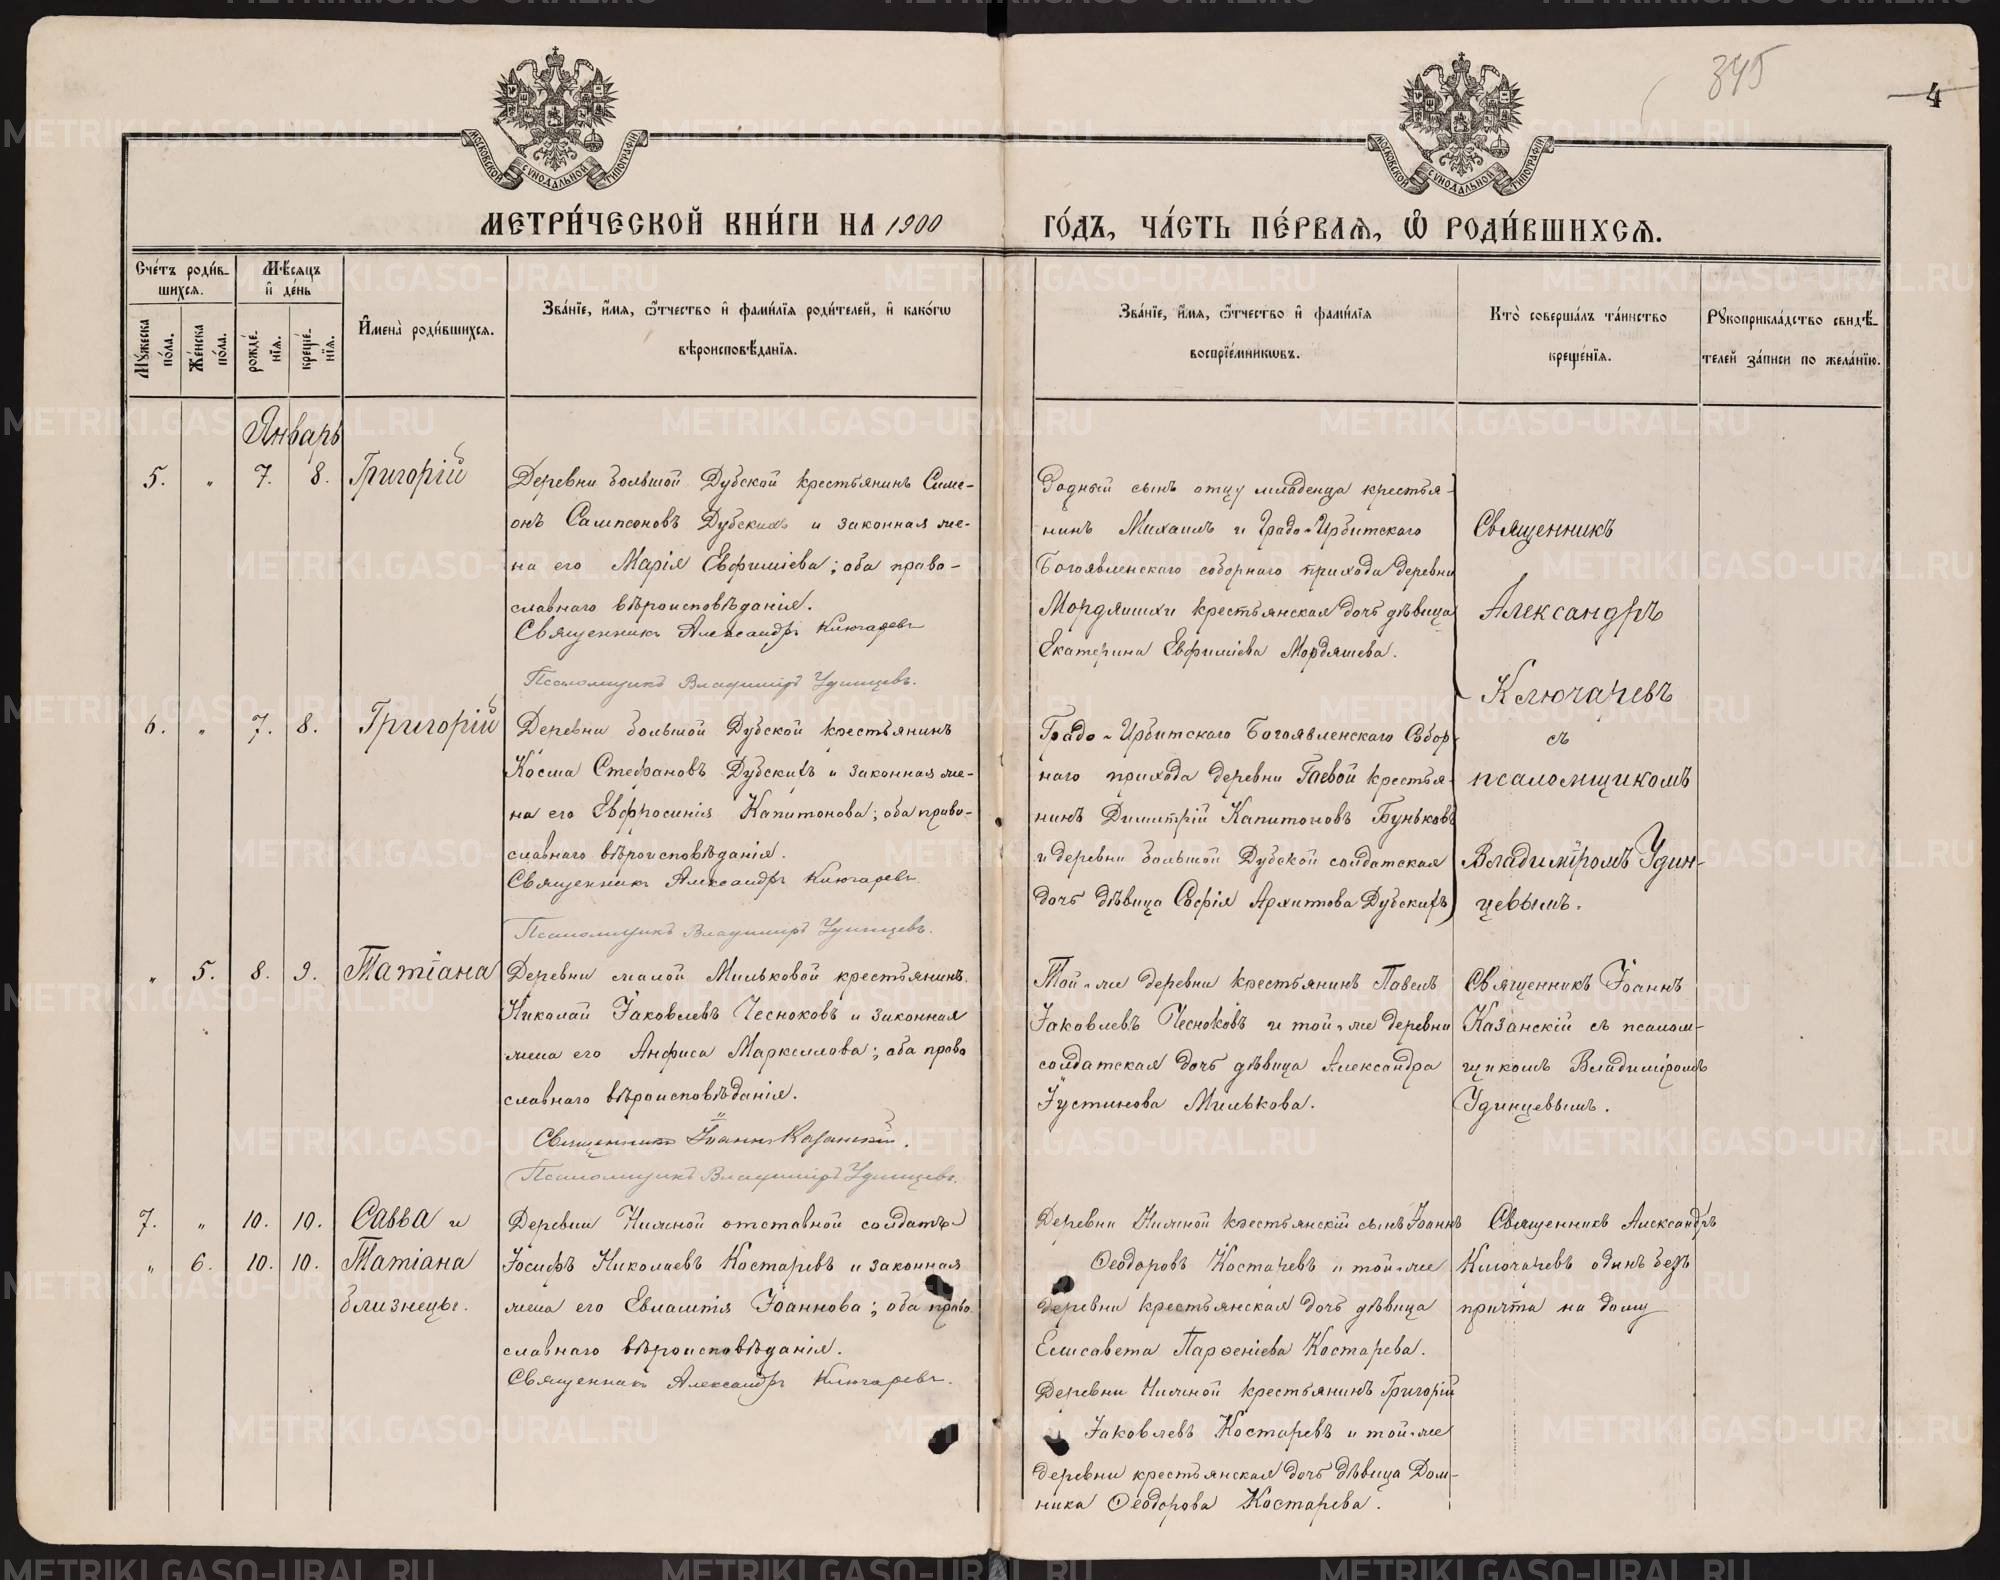 345
4
МОСКОВСКОЙ СУНОДАЛЬНОЙ ТИПОГРАФІИ
МОСКОВСКОЙ СУНОДАЛЬНОЙ ТИПОГРАФІИ
МЕТРИ́ЧЕСКОЙ КНИ́ГИ НА 1900
ГО́ДЪ, ЧА́СТЬ ПЕ́РВАѦ, Ѽ РОДИ́ВШИХСѦ.
Сче́тъ роди́в-
шихсѧ.
Мꙋ́жеска по́ла.
Же́нска по́ла.
Мѣ́сѧцъ и҆ де́нь
рожде́нїѧ.
креще́нїѧ.
И҆мена̀ роди́вшихсѧ.
Зва́нїе, и҆́мѧ, ѻ҆́тчество и҆ фами́лїѧ роди́телей, и҆ како́гѡ
вѣроисповѣ́данїѧ.
Зва́нїе, и҆́мѧ, ѻ҆́тчество и҆ фами́лїѧ
воспрїе́мникѡвъ.
Кто̀ соверша́лъ та́инство
креще́нїѧ.
Рꙋкоприкла́дство свидѣ́-
телей за́писи по жела́нїю.
Январь
5. " 7. 8. Григорій
Деревни большой Дубской крестьянинъ Симе-
онъ Сампсоновъ Дубскихъ и законная же-
на его Марія Евфиміева; оба право-
славнаго вѣроисповѣданія.
Священникъ Александръ Ключаревъ
Псаломщикъ Владиміръ Удинцевъ.
Родный сынъ отцу младенца крестья-
нинъ Михаилъ и Градо-Ирбитскаго
Богоявленскаго соборнаго прихода деревни
Мордяшихи крестьянская дочь дѣвица
Екатерина Евфиміева Мордяшева.
Священникъ
Александръ
Ключаревъ
съ
псаломщикомъ
Владиміромъ Удин-
цевымъ.
6. " 7. 8. Григорій
Деревни большой Дубской крестьянинъ
Косма Стефановъ Дубскихъ и законная же-
на его Евфросинія Капитонова; оба право-
славнаго вѣроисповѣданія.
Священникъ Александръ Ключаревъ.
Псаломщикъ Владиміръ Удинцевъ.
Градо-Ирбитскаго Богоявленскаго Собор-
наго прихода деревни Гаевой крестья-
нинъ Димитрій Капитоновъ Буньковъ
и деревни большой Дубской солдатская
дочь дѣвица Софія Архипова Дубскихъ
" 5. 8. 9. Татіана
Деревни малой Мильковой крестьянинъ
Николай Іаковлевъ Чесноковъ и законная
жена его Анфиса Маркеллова; оба право
славнаго вѣроисповѣданія.
Священникъ Іоаннъ Казанскій.
Псаломщикъ Владиміръ Удинцевъ.
Той-же деревни крестьянинъ Павелъ
Іаковлевъ Чесноковъ и той-же деревни
солдатская дочь дѣвица Александра
Іустинова Милькова.
Священникъ Іоаннъ
Казанскій съ псалом-
щикомъ Владиміромъ
Удинцевымъ.
7. " 10. 10. Савва и
" 6. 10. 10. Татіана
близнецы.
Деревни Ничной отставной солдатъ
Іосифъ Николаевъ Костаревъ и законная
жена его Евлампія Іоаннова; оба право
славнаго вѣроисповѣданія.
Священникъ Александръ Ключаревъ.
Деревни Ничной крестьянскій сынъ Іоаннъ
Ѳеодоровъ Костаревъ и той-же
деревни крестьянская дочь дѣвица
Елисавета Парѳеніева Костарева.
Деревни Ничной крестьянинъ Григорій
Іаковлевъ Костаревъ и той-же
деревни крестьянская дочь дѣвица Дом-
ника Ѳеодорова Костарева.
Священникъ Александръ
Ключаревъ одинъ безъ
причта на дому
METRIKI.GASO-URAL.RU